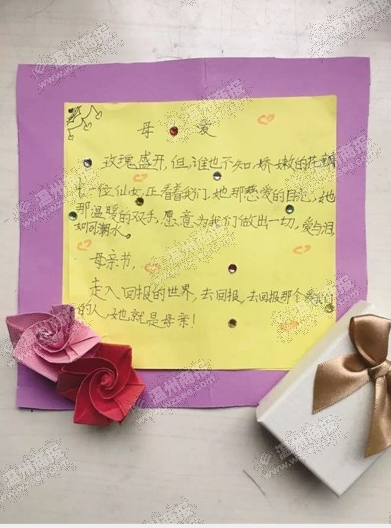 母 爱
玫瑰盛开,但谁也不知,娇嫩的花瓣
七一位仙女正看着我们,她那慈爱的目光,她
那温暖的双手,愿意为我们做出一切,爱与泪
如同潮水。
母亲节,
走入回报的世界,去回报,去回报那个爱我们
的人,她就是母亲!
温州商报